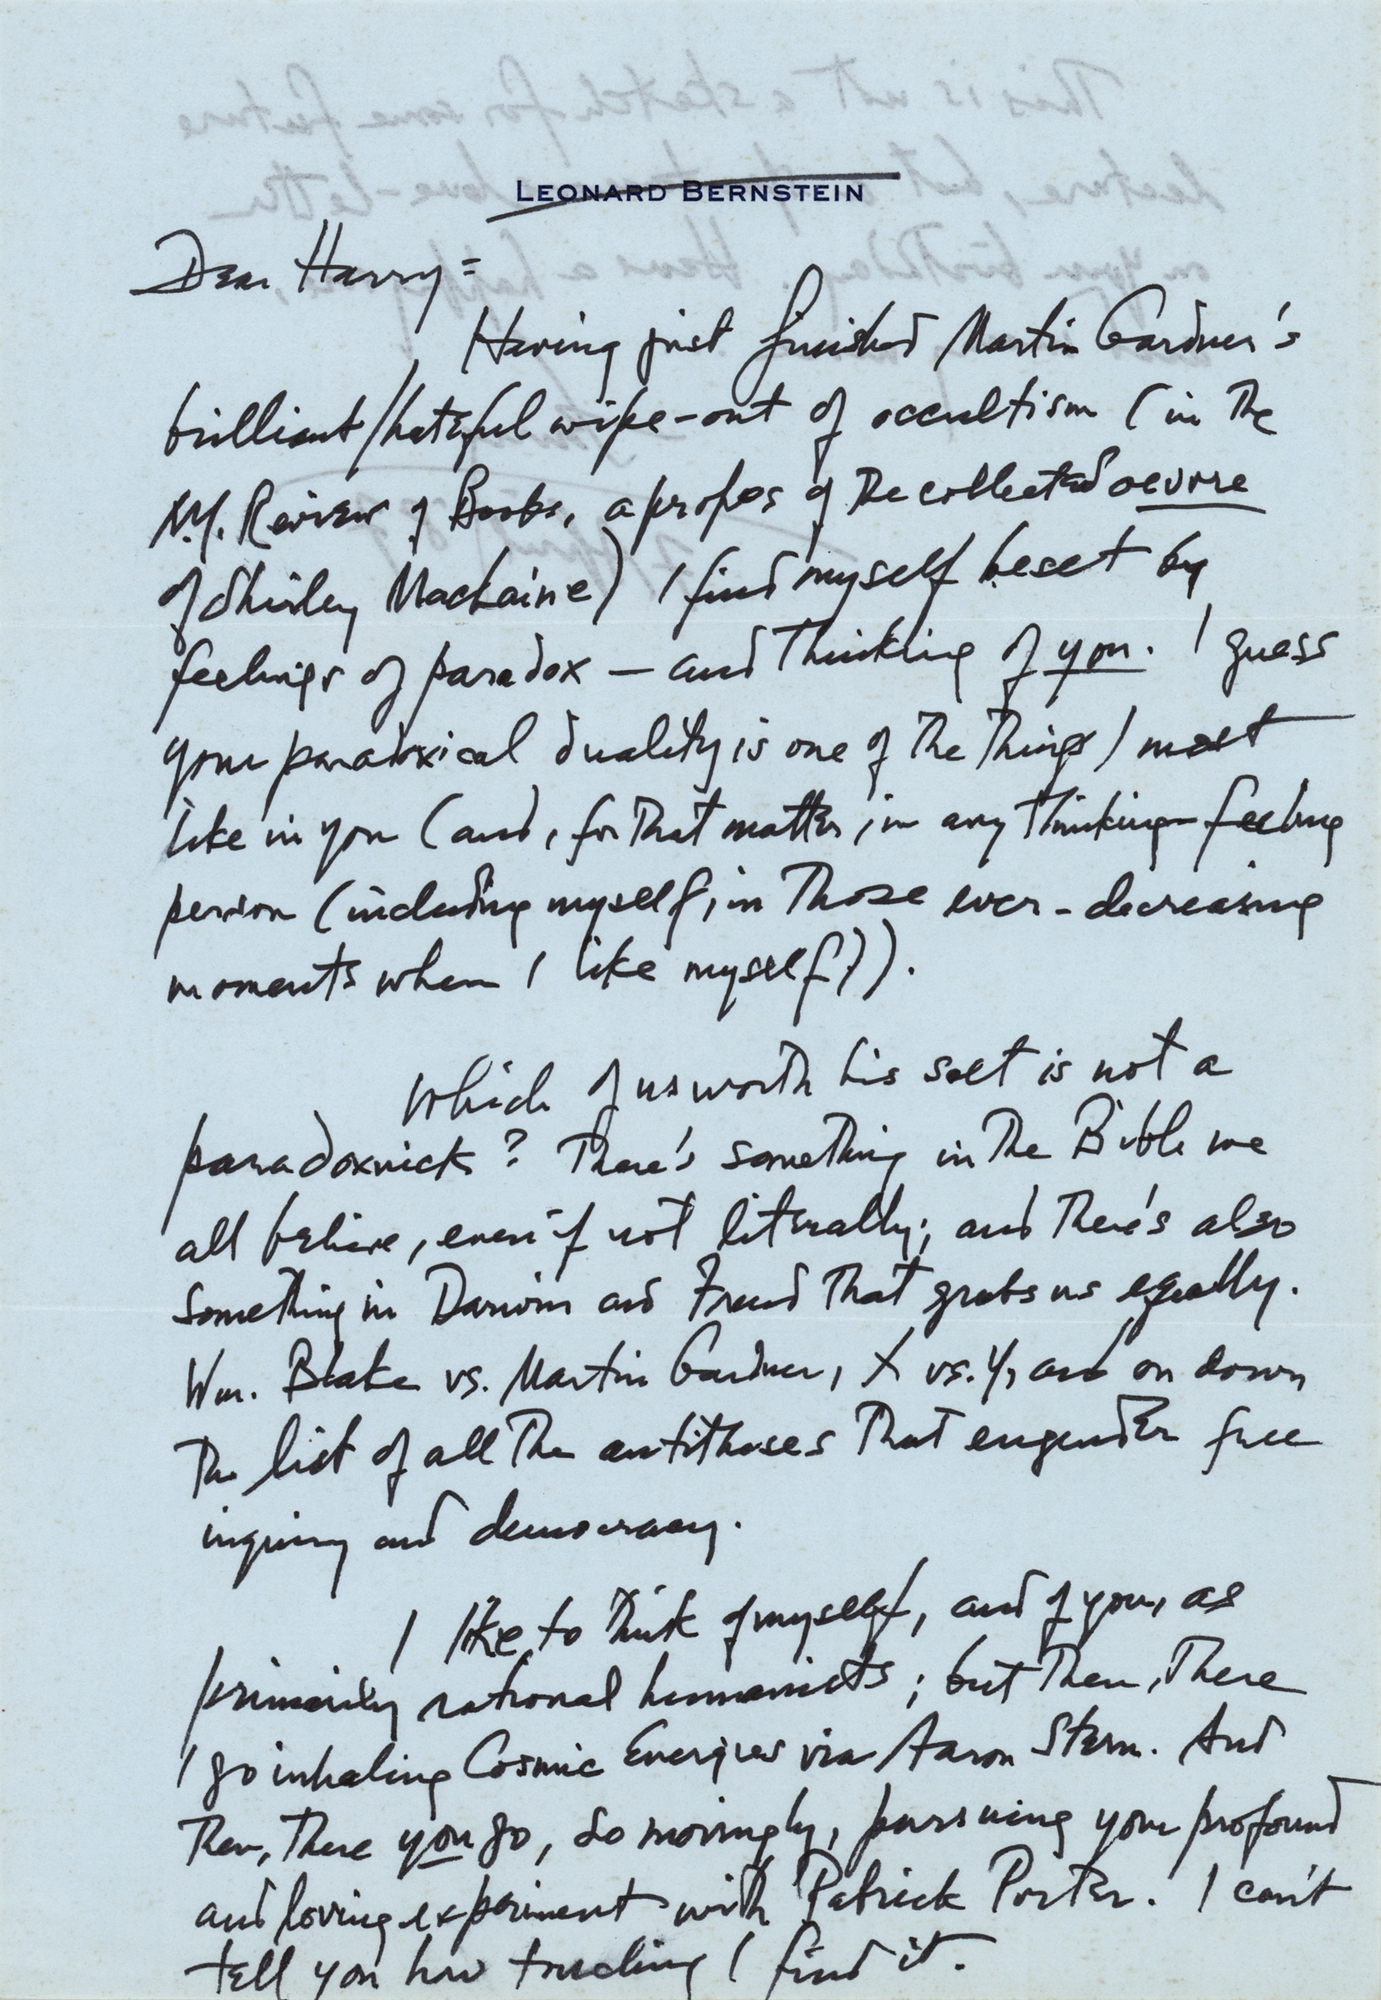 LEONARD BERNSTEIN
Dear Harry =
Having just finished Martin Gardner's
brilliant/hateful wipe-out of occultism (in the
N.Y. Review of Books, apropos of the collected oeuvre
of Shirley MacLaine) I find myself beset by
feelings of paradox — and thinking of you. I guess
your paradoxical duality is one of the things I most
like in you (and, for that matter, in any thinking-feeling
person (including myself, in those ever-decreasing
moments when I like myself)).
Which of us worth his salt is not a
paradoxnick? There's something in the Bible we
all believe, even if not literally; and there's also
something in Darwin and Freud that grabs us equally.
Wm. Blake vs. Martin Gardner, X vs. Y, and on down
the list of all the antitheses that engender free
inquiry and democracy.
I like to think of myself, and of you, as
primarily rational humanists; but then, there
I go inhaling Cosmic Energies via Aaron Stern. And
then, there you go, so movingly, pursuing your profound
and loving experiment with Patrick Porter. I can't
tell you how touching I find it.
This is not a sketch for some future
lecture, but a love-letter
on your birthday. Have a happy